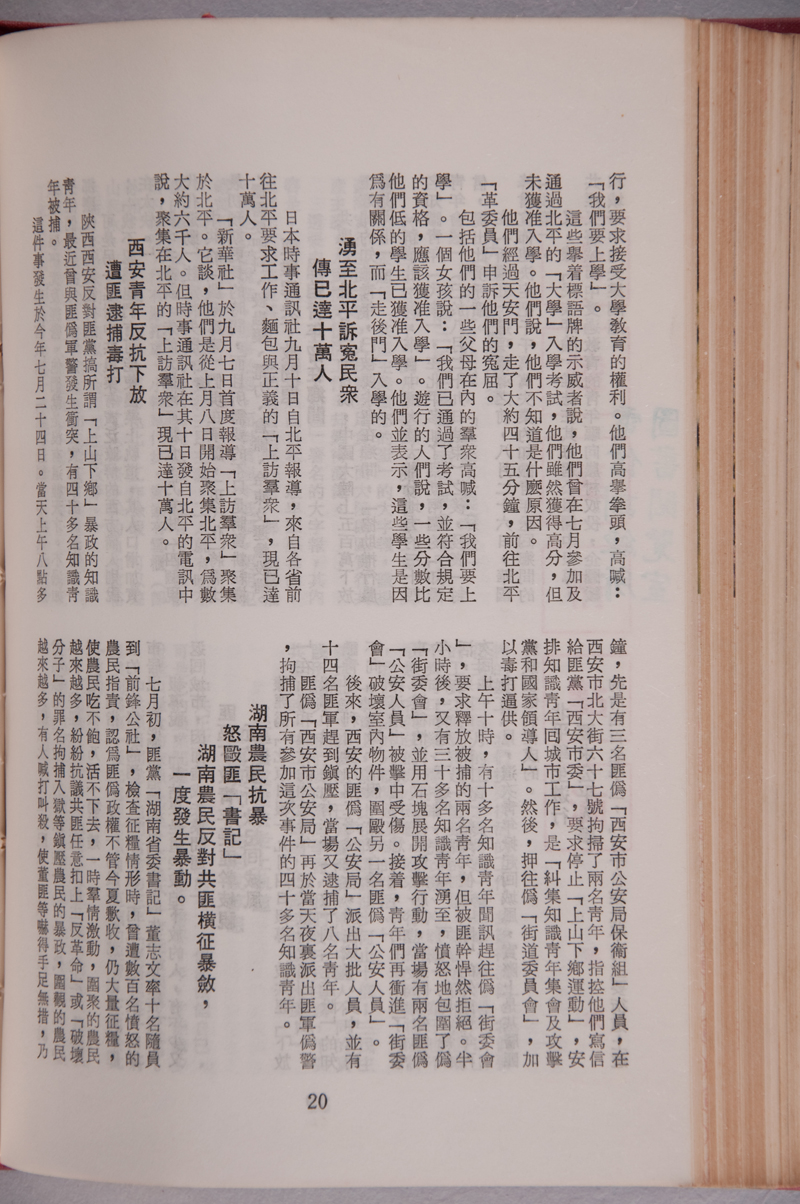 行，要求接受大學教育的權利。他們高舉拳頭，高喊：
「我們要上學」。
這些舉着標語牌的示威者說，他們曾在七月參加及
通過北平的「大學」入學考試，他們雖然獲得高分，但
未獲准入學。他們說，他們不知道是什麼原因。
他們經過天安門，走了大約四十五分鐘，前往北平
「革委員」申訴他們的寃屈。
包括他們的一些父母在內的羣衆高喊：「我們要上
學」。一個女孩說：「我們已通過了考試，並符合規定
的資格，應該獲准入學」。遊行的人們說，一些分數比
他們低的學生已獲准入學。他們並表示，這些學生是因
爲有關係，而「走後門」入學的。
湧至北平訴寃民衆
傳已達十萬人
日本時事通訊社九月十日自北平報導，來自各省前
往北平要求工作、麵包與正義的「上訪羣衆」，現已達
十萬人。
「新華社」於九月七日首度報導「上訪羣衆」聚集
於北平。它談，他們是從上月八日開始聚集北平，爲數
大約六千人。但時事通訊社在其十日發自北平的電訊中
說，聚集在北平的「上訪羣衆」現已達十萬人。
西安青年反抗下放
遭匪逮捕毒打
陝西西安反對匪黨搞所謂「上山下鄉」暴政的知識
青年，最近曾與匪僞軍警發生衝突，有四十多名知識青
年被捕。
這件事發生於今年七月二十四日。當天上午八點多
鐘，先是有三名匪僞「西安市公安局保衞組」人員，在
西安市北大街六十七號拘掃了兩名青年，指控他們寫信
給匪黨「西安市委」，要求停止「上山下鄉運動」，安
排知識青年囘城市工作，是「糾集知識青年集會及攻擊
黨和國家領導人」。然後，押往僞「街道委員會」，加
以毒打逼供。
上午十時，有十多名知識青年聞訊趕往僞「街委會
」，要求釋放被捕的兩名青年，但被匪幹悍然拒絕。半
小時後，又有三十多名知識青年湧至，憤怒地包圍了僞
「街委會」，並用石塊展開攻擊行動，當場有兩名匪僞
「公安人員」被擊中受傷。接着，青年們再衝進「街委
會」破壞室內物件，圍毆另一名匪僞「公安人員」。
後來，西安的匪僞「公安局」派出大批人員，並有
十四名匪軍趕到鎭壓，當場又逮捕了八名青年。
匪僞「西安市公安局」再於當天夜裏派出匪軍僞警
，拘捕了所有參加這次事件的四十多名知識青年。
湖南農民抗暴
怒毆匪「書記」
湖南農民反對共匪橫征暴斂，
一度發生暴動。
七月初，匪黨「湖南省委書記」董志文率十名隨員
到「前鋒公社」，檢查征糧情形時，曾遭數百名憤怒的
農民指責，認爲匪僞政權不管今夏歉收，仍大量征糧，
使農民吃不飽，活不下去，一時羣情激動，圍聚的農民
越來越多，紛紛抗議共匪任意扣上「反革命」或「破壞
分子」的罪名拘捕入獄等鎭壓農民的暴政，圍觀的農民
越來越多，有人喊打叫殺，使董匪等嚇得手足無措，乃
20